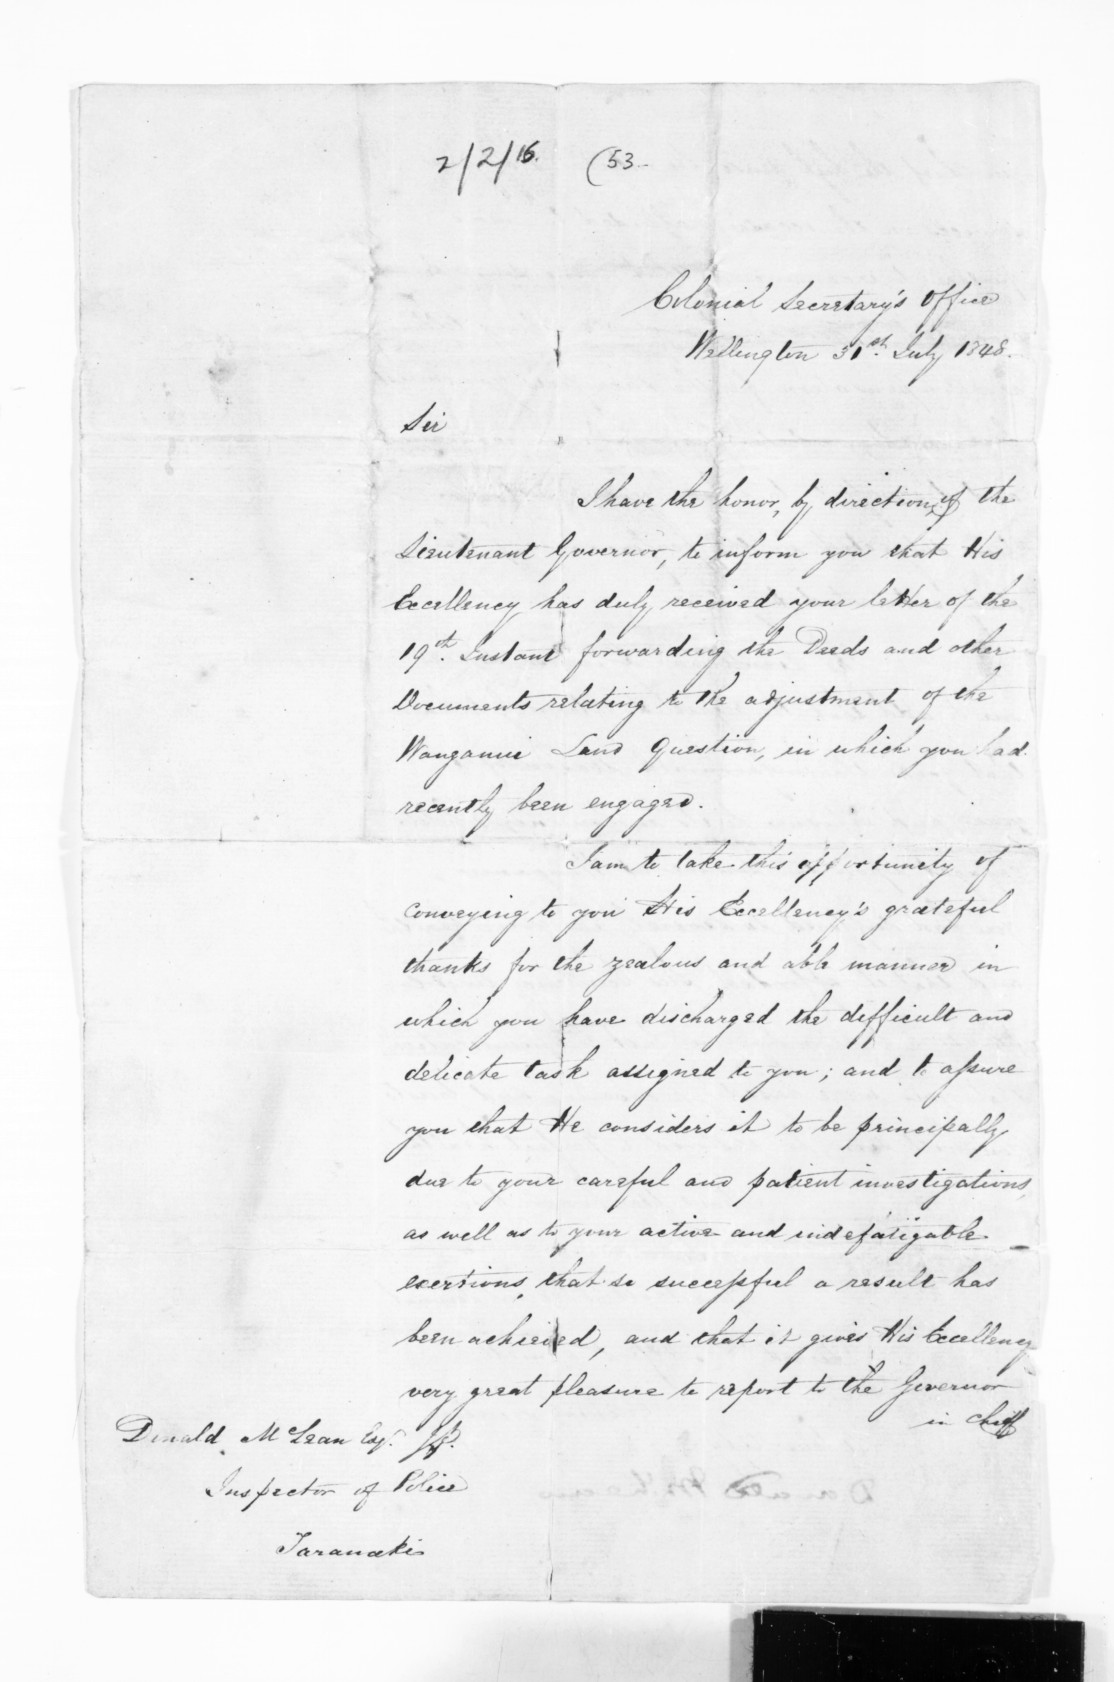 2/2/16. (53
Colonial Secretary's Office
Wellington 31st. July 1848.
Sir
I have the honor, by direction of the
Lieutenant Governor, to inform you that His
Excellency has duly received your letter of the
19th. Instant forwarding the Deeds and other
Documents relating to the adjustment of the
Wanganui Land Question, in which you had
recently been engaged.
I am to take this opportunity of
conveying to you His Excellency's grateful
thanks for the zealous and able manner in
which you have discharged the difficult and
delicate task assigned to you; and to assure
you that He considers it to be principally
due to your careful and patient investigations,
as well as to your active and indefatigable
exertions, that so successful a result has
been achieved, and that it gives His Excellency
very great pleasure to report to the Governor
in Chief
Donald McLean Esq. J.P.
Inspector of Police
Taranaki